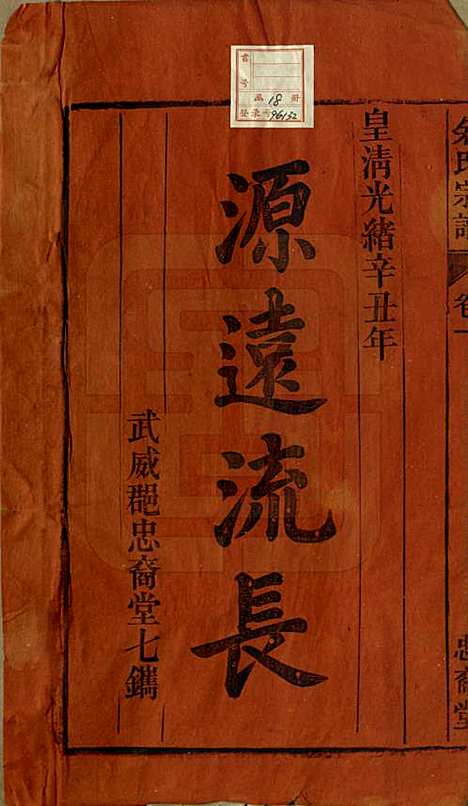 書
号
函 18 冊
登录号 96152
氏宗譜
卷一
忠裔堂
皇清光緒辛丑年
源遠流長
武威郡忠裔堂七鐫